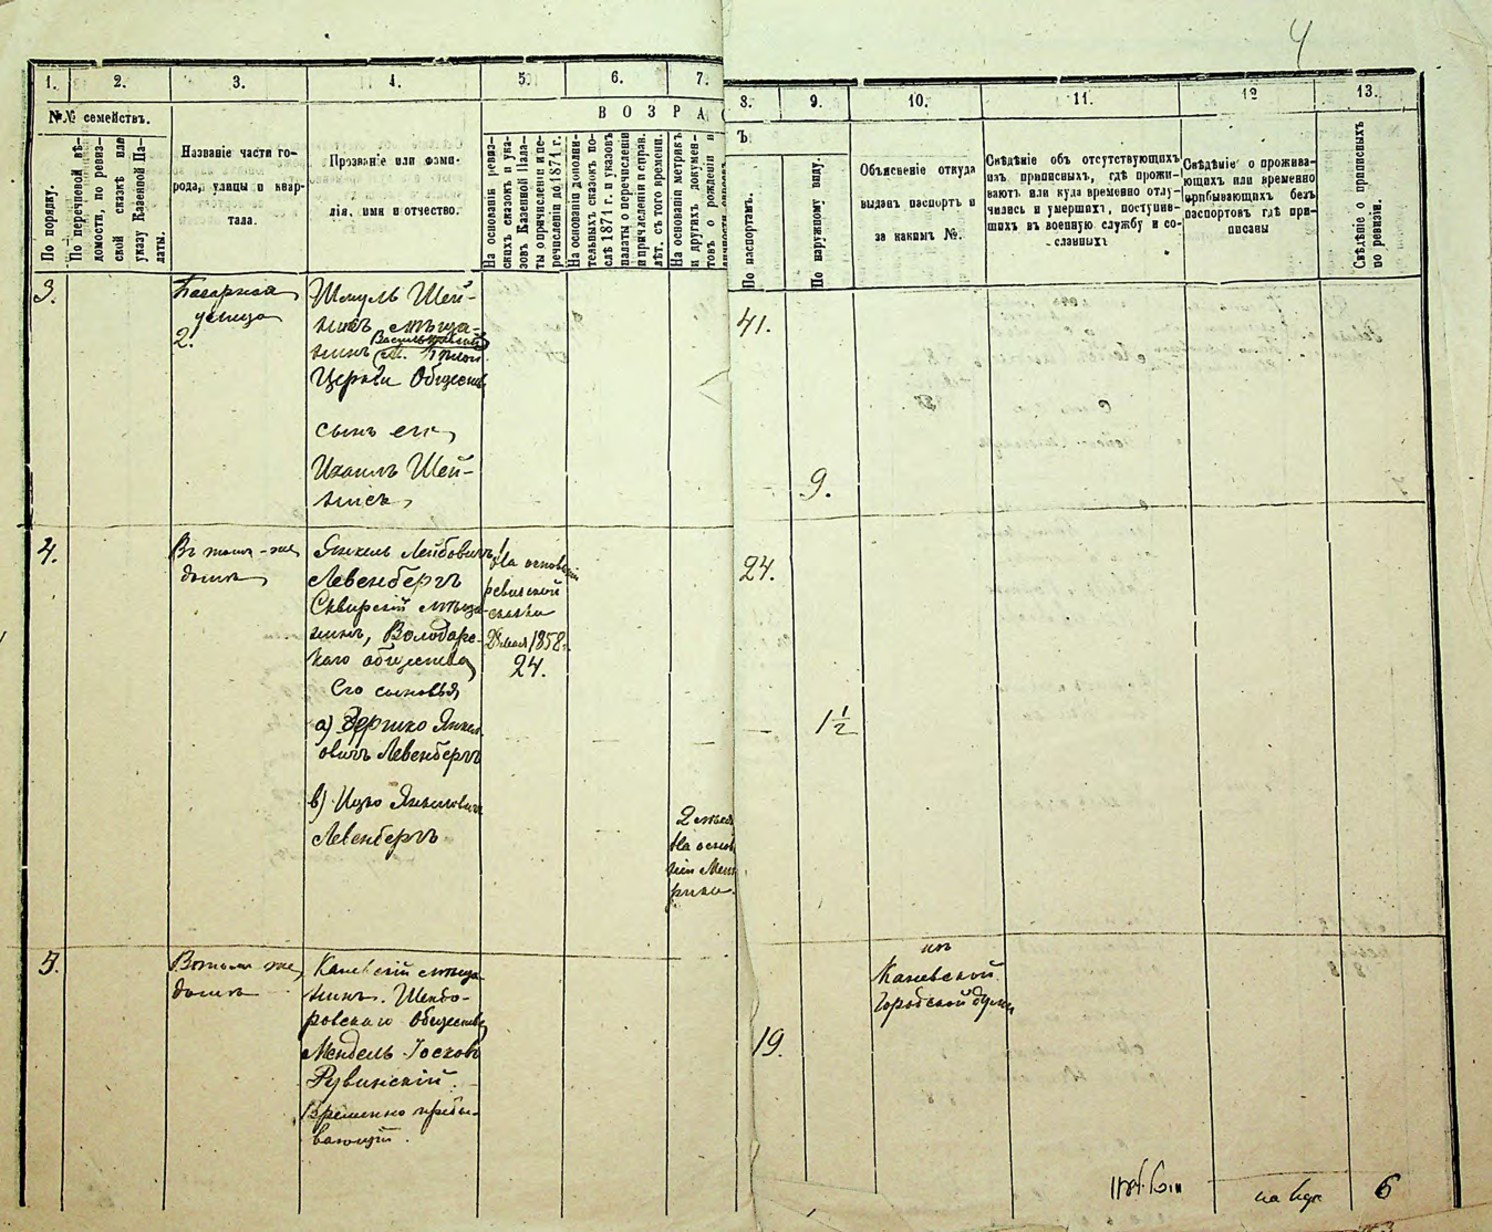 4
1.
2.
3.
4.
5.
6.
7.
8.
9.
10.
11.
12
13.
№№ семействъ.
По порядку.
По перечневой вѣ-
домости, по ревиз-
ской сказкѣ или
указу Казенной Па-
латы.
Названіе части го-
рода, улицы и квар-
тала.
Прозваніе или фами-
лія, имя и отчество.
ВОЗРАС
Ъ
На основаніи ревиз-
скихъ сказокъ и ука-
зовъ Казенной Пала-
ты о причисленіи и пе-
речисленіи до 1871 г.
На основаніи дополни-
тельныхъ сказокъ по-
слѣ 1871 г. и указовъ
палаты о перечисленіи
и причисленіи и справ.
лѣт. съ того времени.
На основаніи метрикъ
и другихъ докумен-
товъ о рожденіи и
По паспортамъ.
По наружному виду.
Объясненіе откуда
выданъ паспортъ и
за какимъ №.
Свѣдѣніе объ отсутствующихъ
изъ приписныхъ, гдѣ прожи-
ваютъ или куда временно отлу-
чились и умершихъ, поступив-
шихъ въ военную службу и со-
сланныхъ
Свѣдѣніе о прожива-
ющихъ или временно
прибывающихъ безъ
паспортовъ гдѣ при-
писаны
Свѣдѣніе о приписныхъ
по ревизіи.
3.
Базарная
улица
2.
Шмуль Шей-
нисъ мѣща-
нинъ Васильковскій
(м. Бѣлой
Церкви Обществ
сынъ его
Ихаилъ Шей-
нисъ
41.
9.
4.
Въ томъ-же
домѣ
Янкель Лейбовичъ
Левенбергъ
Сквирскій мѣща-
нинъ, Володарс-
каго общества
Его сыновья
а) Гершко Янкел
овичъ Левенбергъ
в) Ицко Янкеловичъ
Левенбергъ
На основаніи
ревизской
сказки
1858 г.
24.
24.
1 1/2
2 мѣсяц
На основ
ніи Мет
рики.
5.
Въ томъ же
домѣ
Каневскій мѣща-
нинъ. Шендо-
ровскаго Общества
Мендель Іосковъ
Рувинскій.
Временно пребы-
вающій.
19.
изъ
Каневской
Городской думы
6